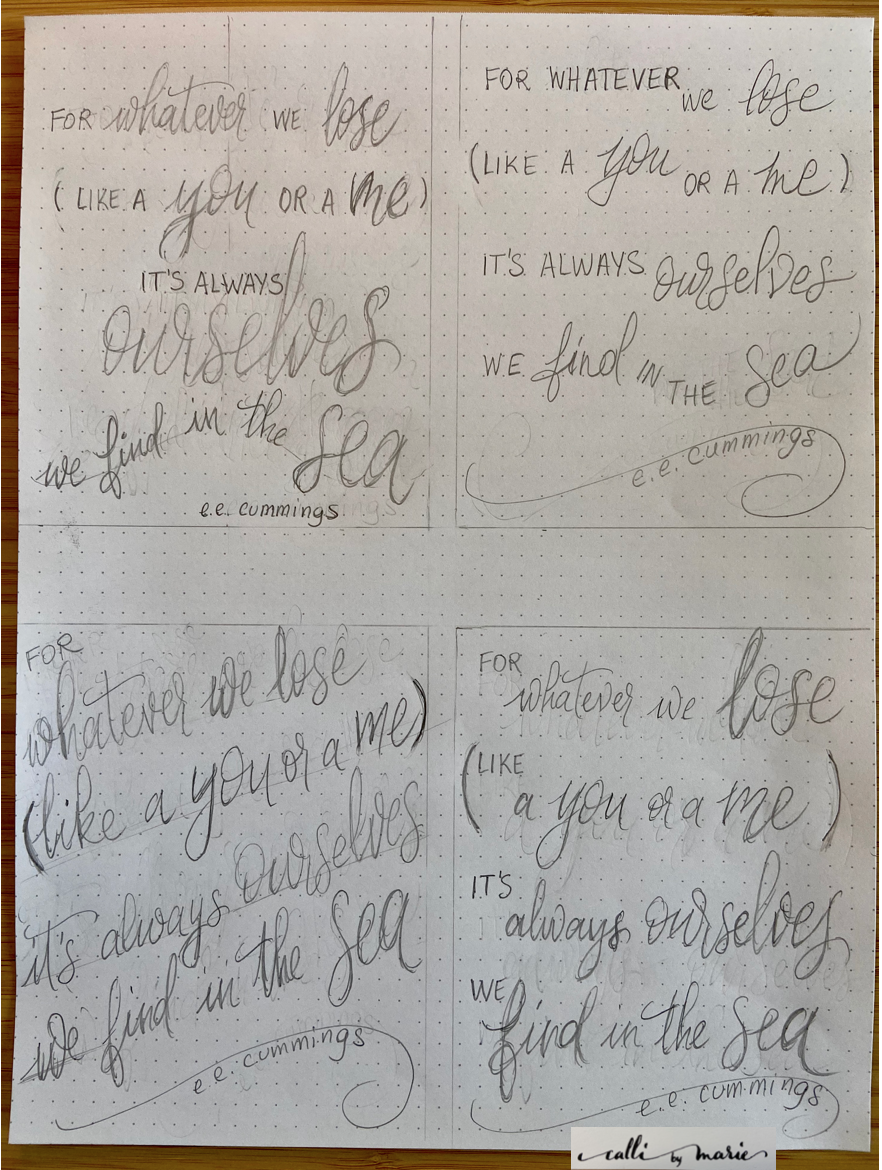 FOR whatever WE lose
(LIKE A you OR A me)
IT'S ALWAYS
ourselves
we find in the sea
e.e. cummings
FOR WHATEVER we lose
(LIKE A you OR A me)
IT'S ALWAYS ourselves
WE find IN THE sea
e.e. cummings
FOR
whatever we lose
(like a you or a me)
it's always ourselves
we find in the sea
e.e. cummings
FOR
whatever we lose
(LIKE
a you or a me)
IT'S
always ourselves
WE
find in the sea
e.e. cummings
calli by marie